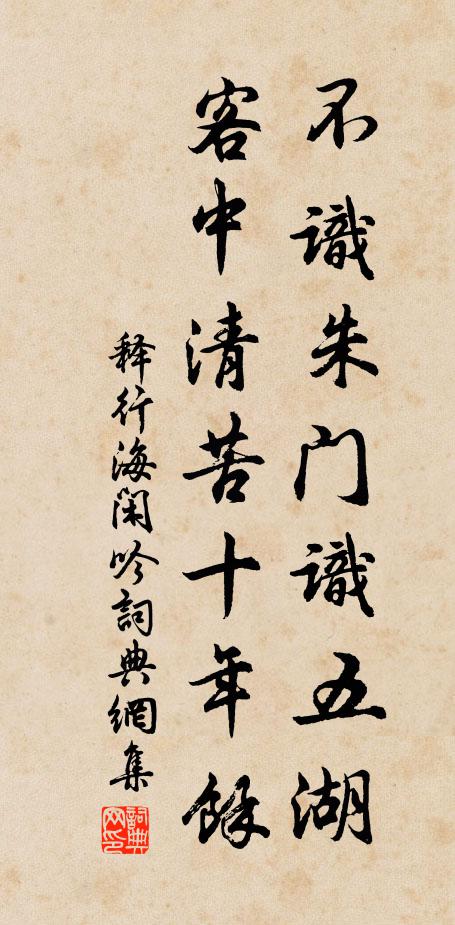 不識朱门識五湖
客中清苦十年馀
释行海閑吟詞典網集
詞典网印